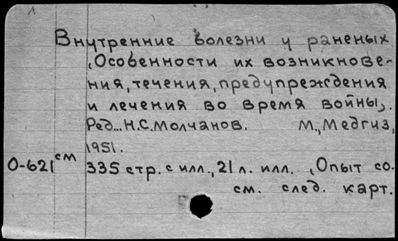 1
Внутренние болезни у раненых
„Особенности их возникнове-
ния, течения, предупреждения
и лечения во время войны„.
Ред...Н.С.Молчанов. М., Медгиз,
1951.
О-621 см 335 стр. с илл., 21 л. илл. „Опыт со.
см. след. карт.